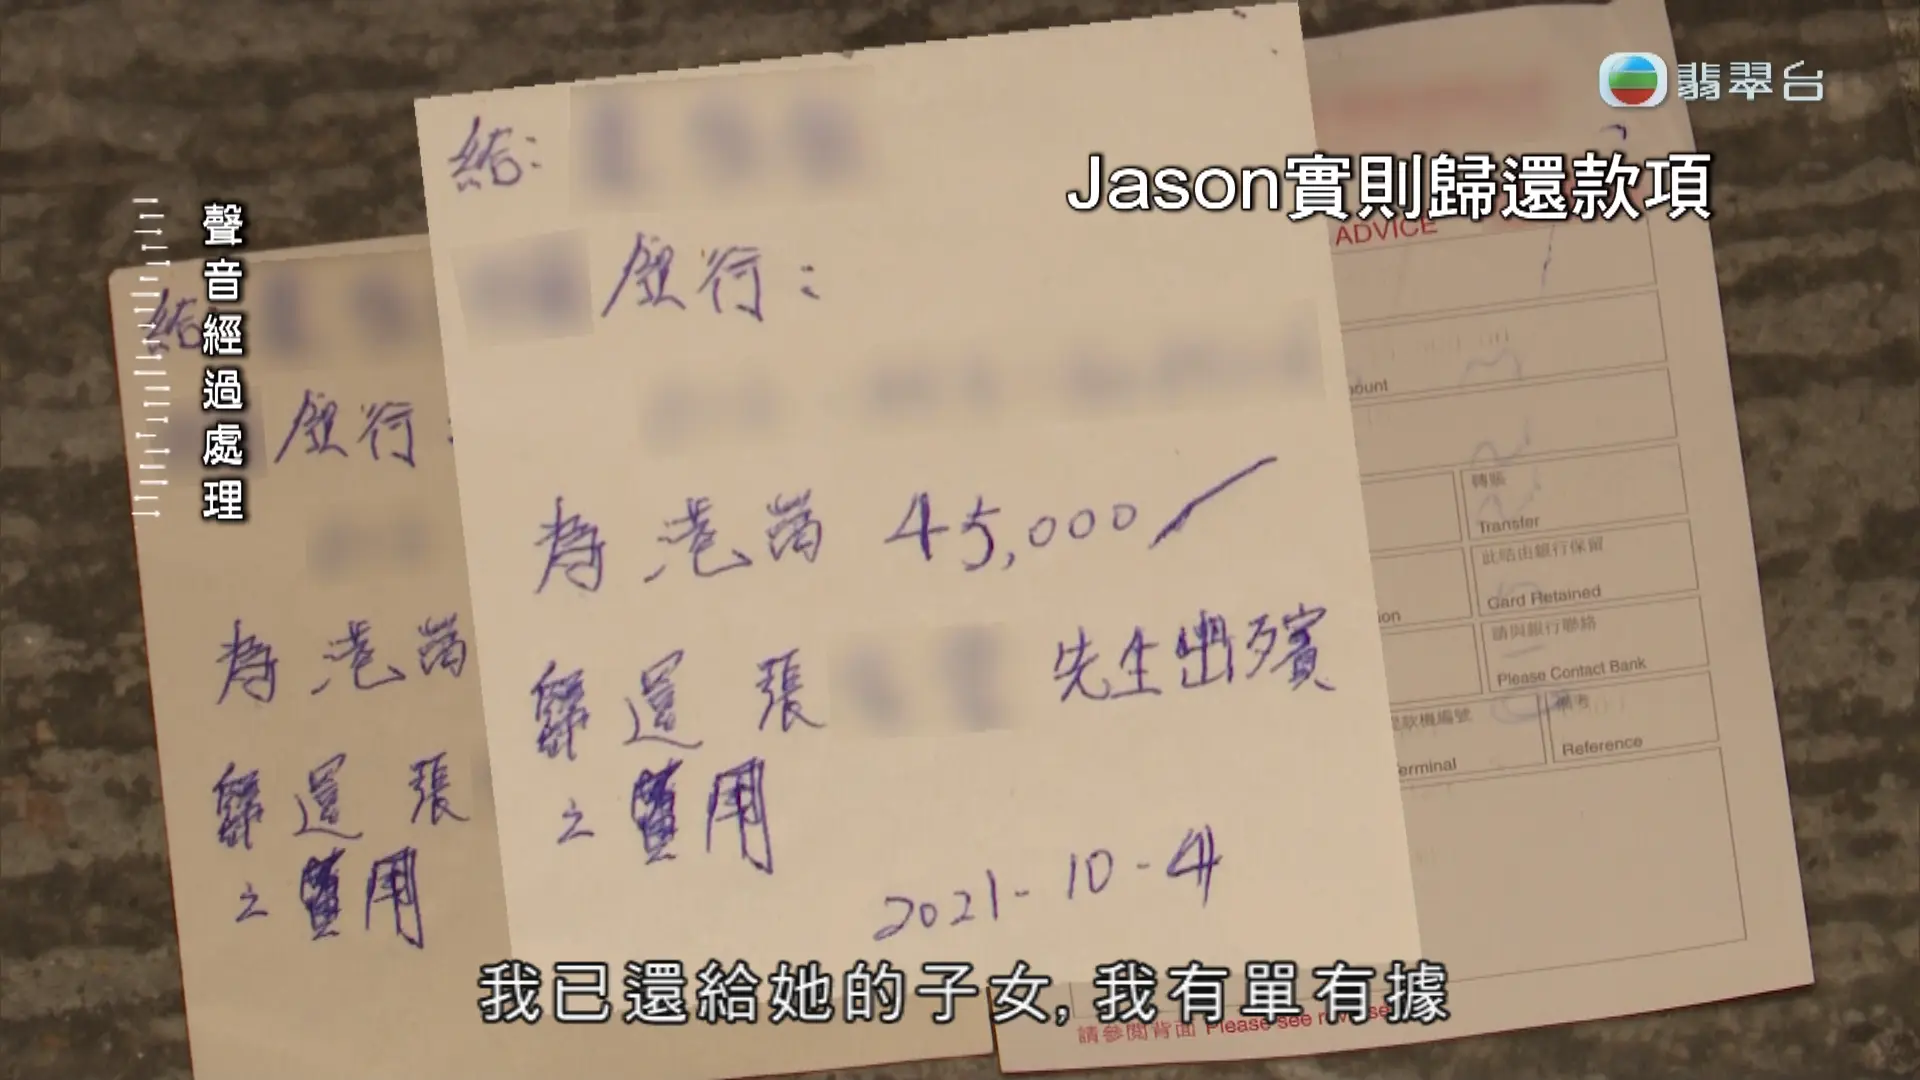 翡翠台
Jason實則歸還款項
聲音經過處理
給:
銀行:
為港幣 45,000
歸還 張 先生出殯
之費用
2021-10-4
給
銀行:
為港幣
歸還 張
之費用
ADVICE
轉賬
Transfer
此咭由銀行保留
Card Retained
請與銀行聯絡
Please Contact Bank
備考
Reference
請參閱背面 Please see reverse
我已還給她的子女, 我有單有據